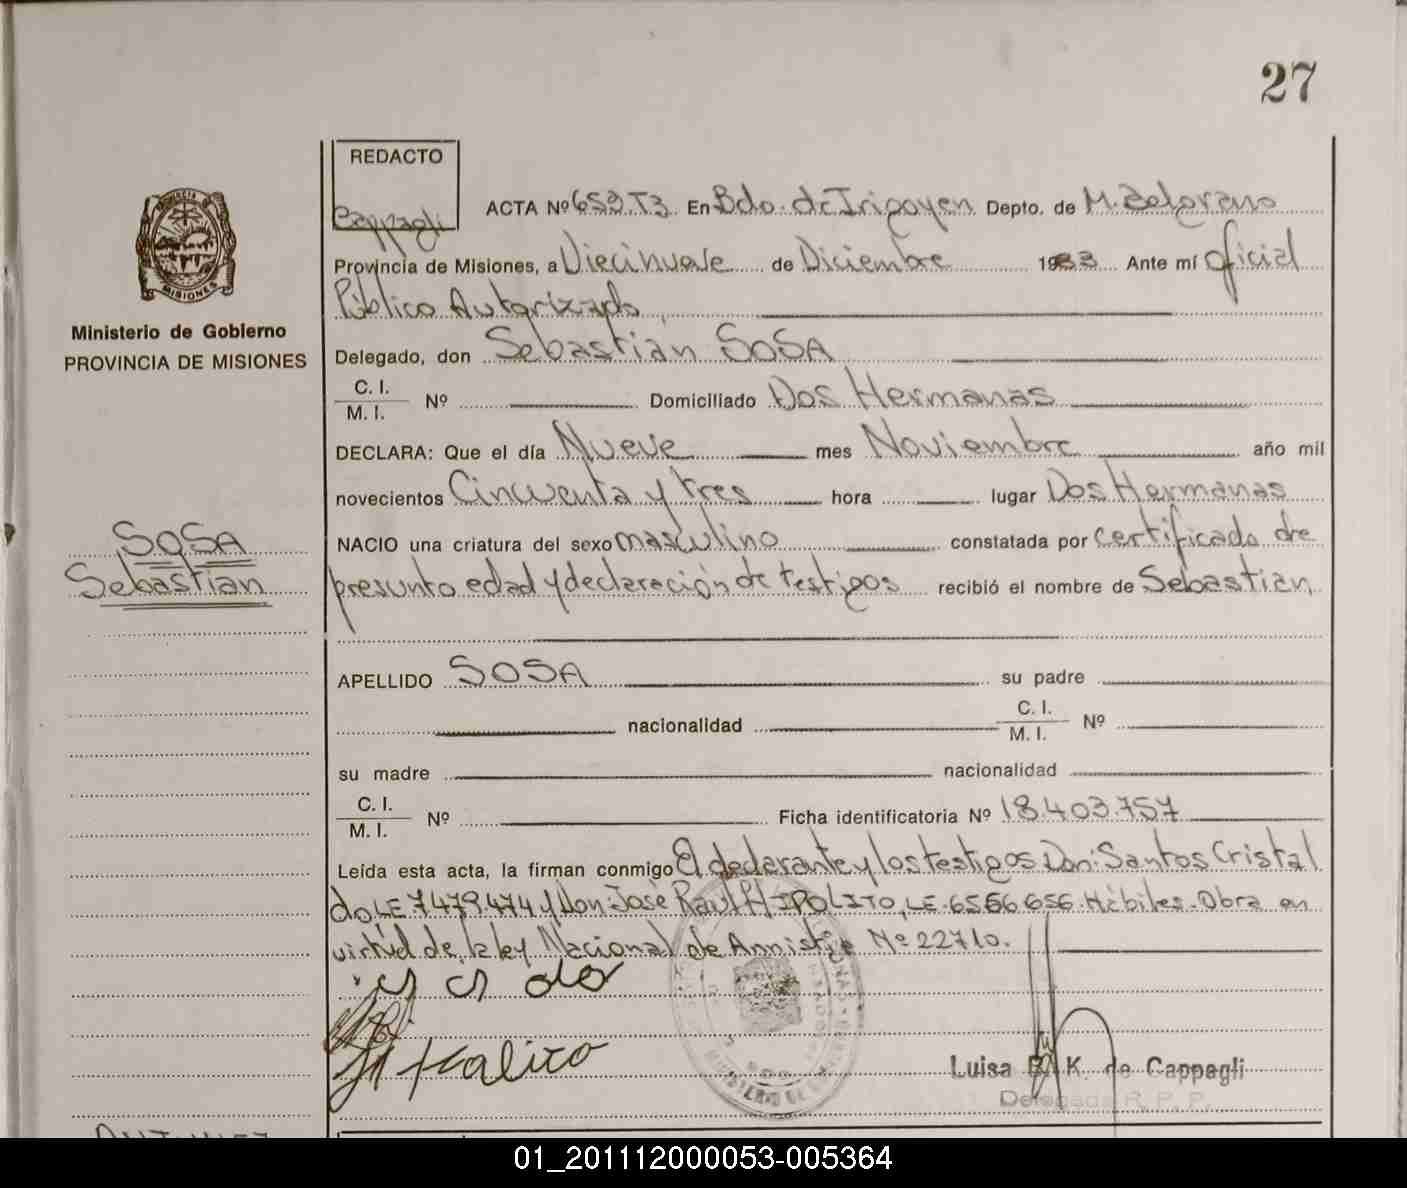 27
REDACTO
Cappagli
ACTA Nº 659 T3 En Bdo. de Irigoyen Depto. de M. Belgrano
Provincia de Misiones, a Diecinueve de Diciembre 1983 Ante mí Oficial
Público Autorizado,
Delegado, don Sebastian SOSA
C. I.
M. I. Nº Domiciliado Dos Hermanas
DECLARA: Que el día Nueve mes Noviembre año mil
novecientos Cincuenta y tres hora lugar Dos Hermanas
NACIO una criatura del sexo masculino constatada por certificado de
presunto edad y declaración de testigos recibió el nombre de Sebastian,
APELLIDO SOSA su padre
nacionalidad C. I.
M. I. Nº
su madre nacionalidad
C. I.
M. I. Nº Ficha identificatoria Nº 18.403.757
Leída esta acta, la firman conmigo El declarante y los testigos Don: Santos Cristal
do LE 7479474 y Don José Raul HIPOLITO, LE. 6566656. Hábiles. Obra en
virtud de la ley Nacional de Amnistia Nº 22710.
Luisa K. de Cappagli
Delegada R. P. P.
PROVINCIA DE
MISIONES
Ministerio de Gobierno
PROVINCIA DE MISIONES
SOSA
Sebastian
01_201112000053-005364